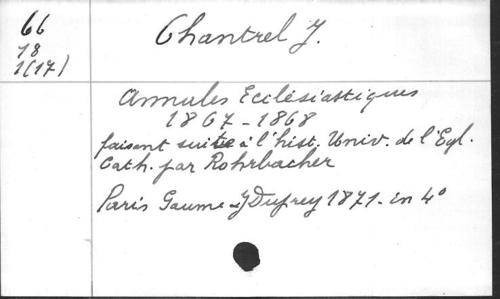 66
18
1(17)
Chantrel J.
Annales Ecclésiastiques
1867-1868
faisant suite à l'hist. Univ. de l'Egl.
Cath. par Rohrbacher
Paris Gaume & J Dufrey 1871. in 4°